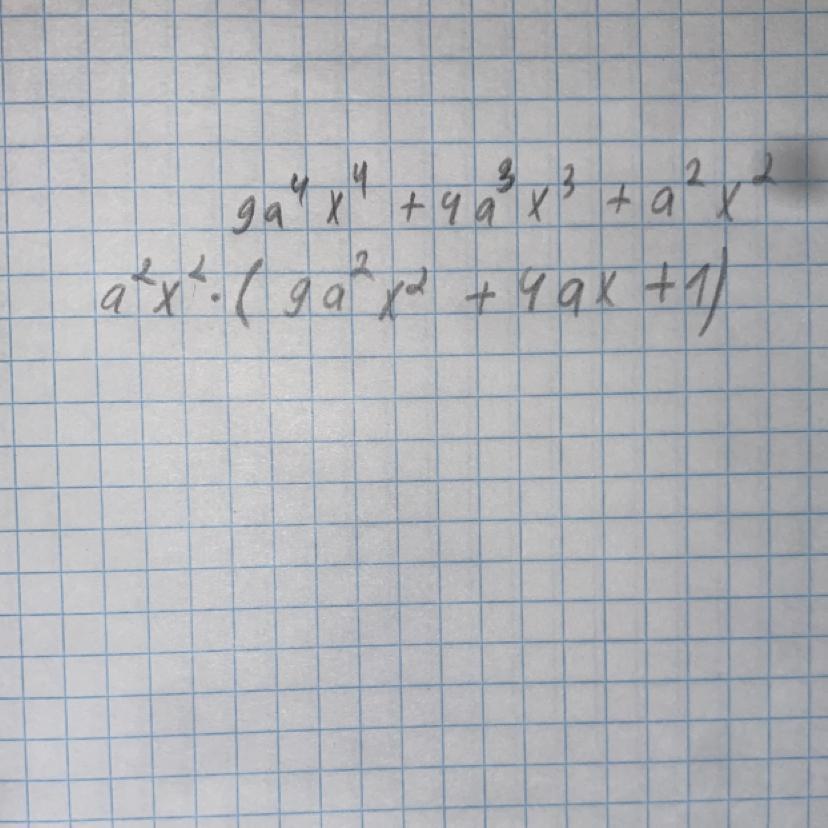 9a⁴x⁴ + 4a³x³ + a²x²
a²x² · (9a²x² + 4ax + 1)